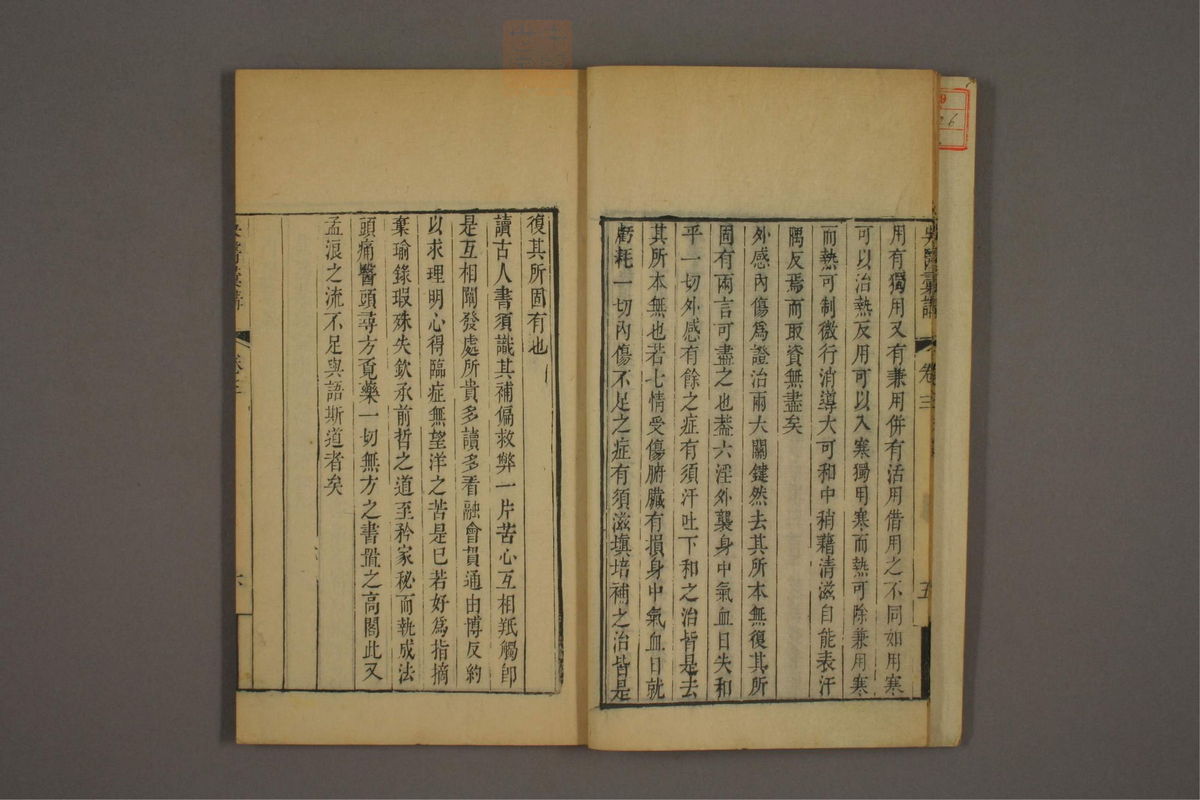 吳醫彙講
卷三
五
用有獨用又有兼用併有活用借用之不同如用寒
可以治熱反用可以入寒獨用寒而熱可除兼用寒
而熱可制微行消導大可和中稍藉清滋自能表汗
隅反焉而取資無盡矣
外感內傷為證治兩大關鍵然去其所本無復其所
固有兩言可盡之也葢六淫外襲身中氣血日失和
平一切外感有餘之症有須汗吐下和之治皆是去
其所本無也若七情受傷腑臟有損身中氣血日就
虧耗一切內傷不足之症有須滋塡培補之治皆是
復其所固有也
讀古人書須識其補偏救弊一片苦心互相羝觸卽
是互相闡發處所貴多讀多看融會貫通由博反約
以求理明心得臨症無望洋之苦是已若好為指摘
棄瑜錄瑕殊失欽承前哲之道至矜家秘而執成法
頭痛醫頭尋方覓藥一切無方之書置之高閣此又
孟浪之流不足與語斯道者矣
吳醫彙講
卷三
六